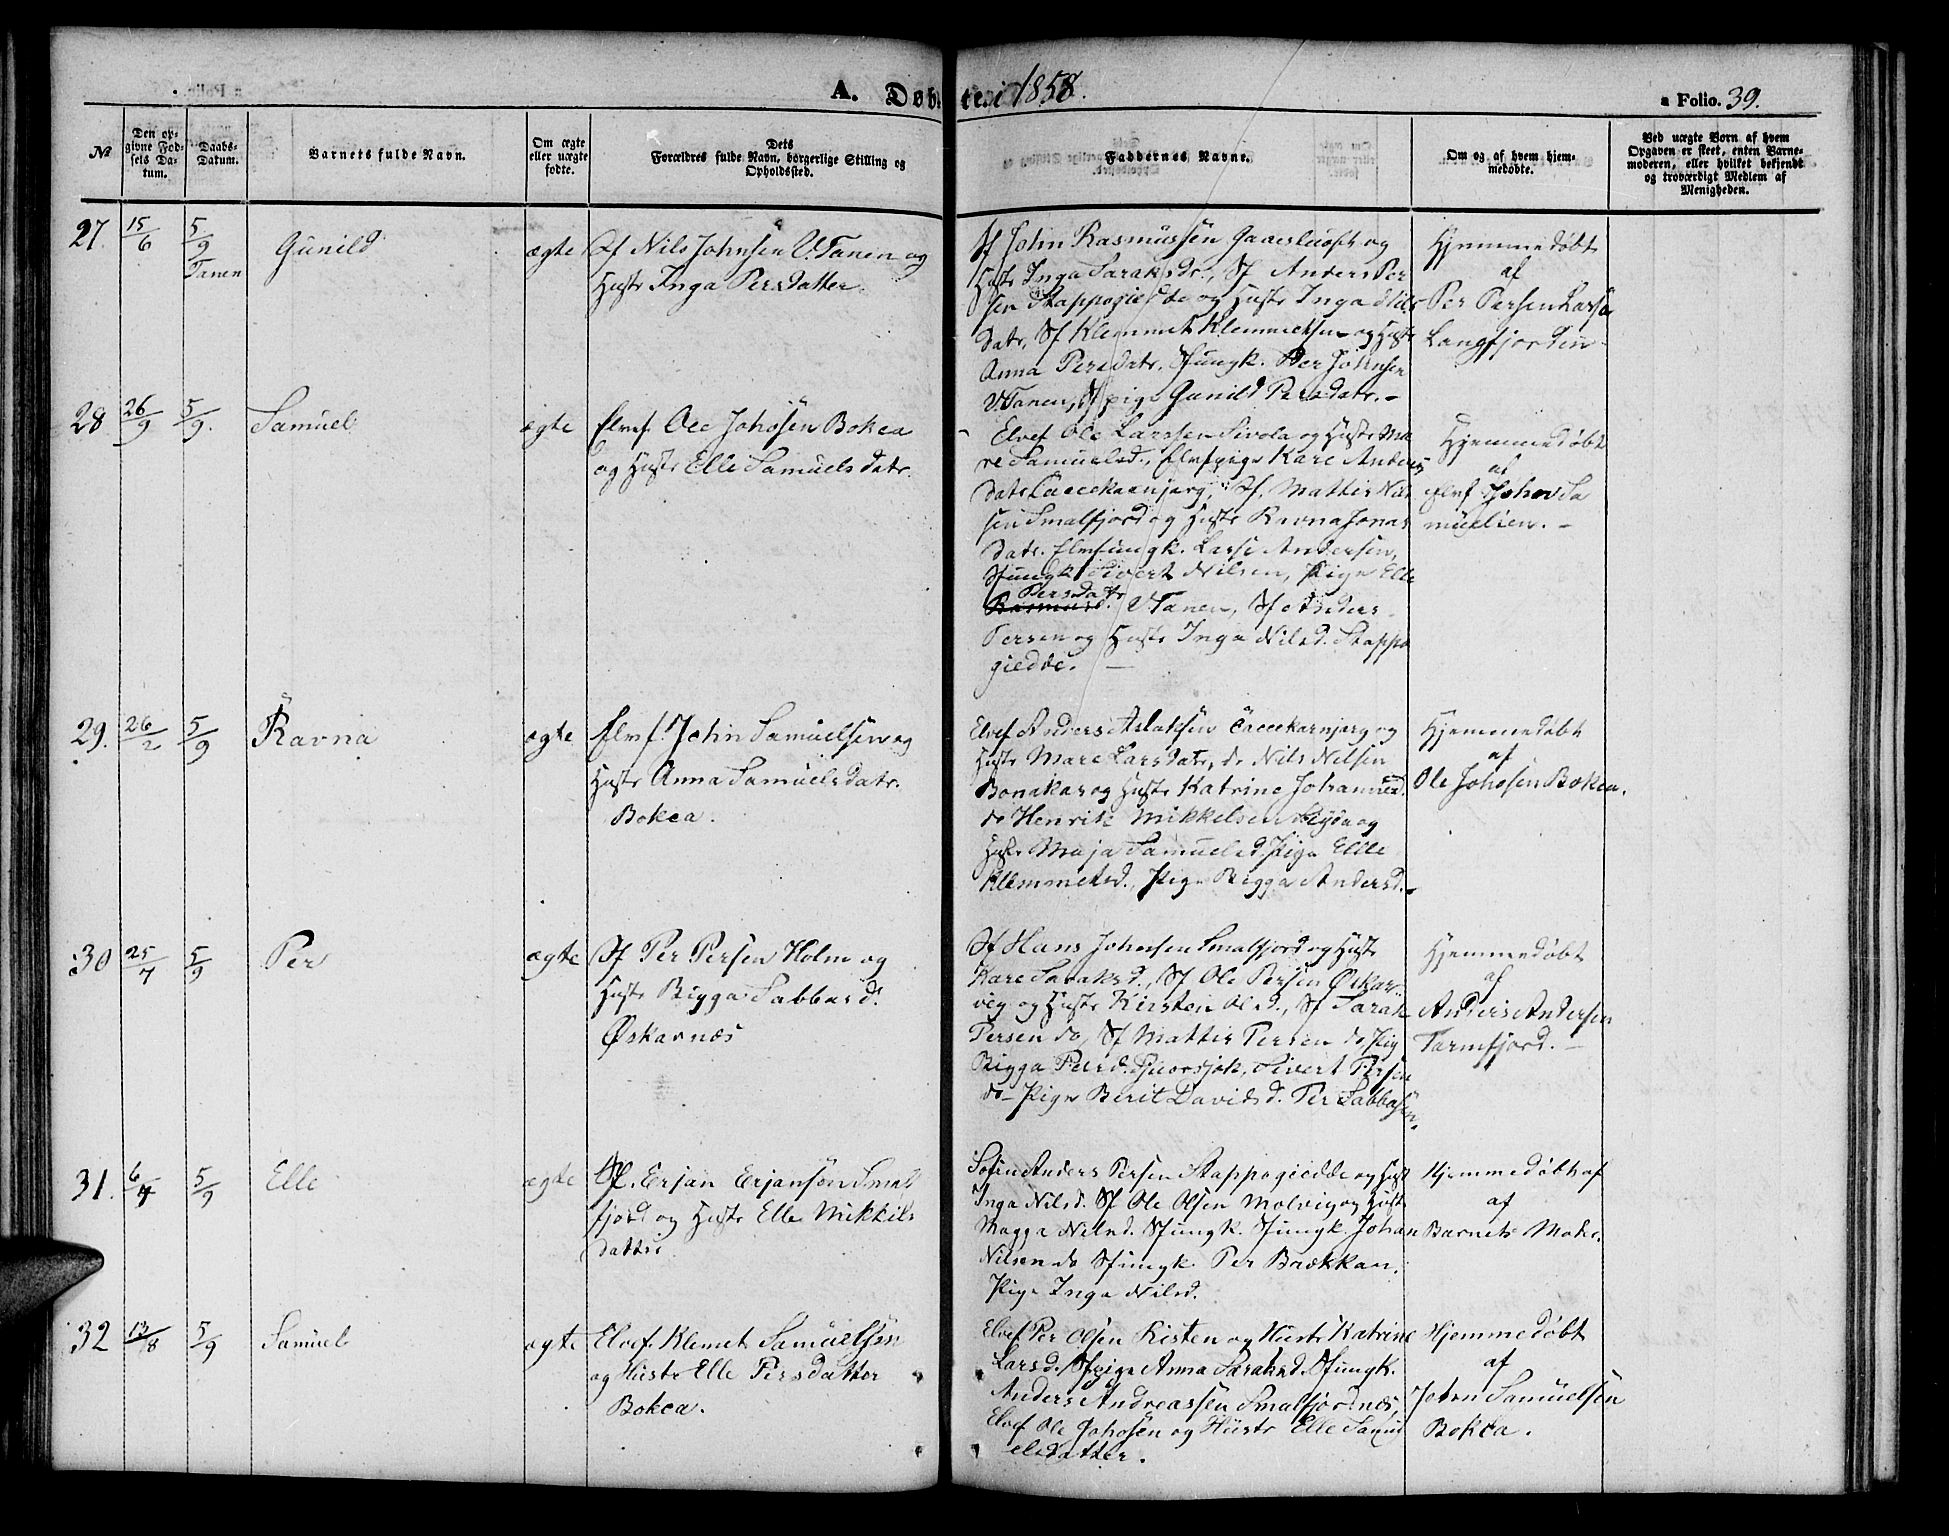 A. Døbte i 1858.
a Folio. 39.
No
Den opgivne Fødsels Datum.
Daabs-Datum.
Barnets fulde Navn.
Om ægte eller uægte fødte.
Dets Forældres fulde Navn, borgerlige Stilling og Opholdssted.
Faddernes Navne.
Om og af hvem hjemmedøbte.
Ved uægte Børn af hvem Opgaven er skeet, enten Barnemoderen, eller hvilket bekjendt og troværdigt Medlem af Menigheden.
27. 15/6 5/9 Tanen Gunild ægte
Sf Nils Johnsen V. Tanen og
Hustr Inga Persdatter.
Sf John Rasmussen og
Hustr Inga Saraksdr., Sf Anders Per
sen Stappogiedde og Hustr Inga Nils
datr, Sf Klemmet Klemmetsen og Hustr
Anna Persdatr. Sfungk. Per Johnsen
V. Tanen, Sfpige Gunild Persdatr. –
Hjemmedøbt
af
Per Persen Larse
Langfjorden
28 26/9 5/9. Samuel ægte
Elvef. Ole Johosen Bokca
og Hustr Elle Samuels datr.
Elvef Ole Larssen Sivola og Hustr Ma
re Samuelsd., Elvefpige Kare Anders
datr Caccekarnjarg, Sf. Mattis Nil
sen Smalfjord og Hustr Ravna Jonas
datr. Elvefungk. Larse Andersen,
Sfungk Sivert Nilsen, Pige Elle
Persdatr
V. Tanen, Sf Anders
Persen og Hustr Inga Nilsd. Stappo
giedde. –
Hjemmedøbt
af
Elvf John Sa
muelsen. –
29. 26/2 5/9 Ravna ægte
Elvf. John Samuelsen og
Hustr Anna Samuels datr.
Bokca.
Elvef Anders Aslaksen Caccekarnjarg og
Hustr Mare Larsdatr, do Nils Nilsen
Bonakas og Hustr Katrine Johannesd.
do Henrik Mikkelsen og
Hustr Maja Samuelsd. Pige Elle
Klemmetsd., Pige Bigga Andersd. –
Hjemmedøbt
af
Ole Johosen Bokca.
30 25/7 5/9 Per ægte
Sf Per Persen Holm og
Hustr Bigga Sabbasd.
Øskarnæs
Sf Hans Johnsen Smalfjord og Hustr
Kare Saraksd., Sf Ole Persen Øskar
vig og Hustr Kirsten Olsd., Sf Sarak
Persen do, Sf Mattis Persen do Pig
Bigga Persd. Sivert Persen
do – Pige Berit Davidsd. Per Sabbasen,
Hjemmedøbt
af
Anders Andersen
Tarmfjord. –
31. 6/4 5/9 Elle ægte
Sf. Erjan Erjansøn Smal
fjord og Hustr Elle Mikkels
datter
Anders Persen Stappogiedde og Hust
Inga Nilsd. Sf Ole Olsen Molvig og Hustr
Magga Nilsd. Sfungk. Sfungk. Johan
Nilsen do Sfungk. Per Bækkan.
Pige Inga Nilsd.
Hjemmedøbt af
af
Barnets Moder.
32 13/8 5/9 Samuel ægte
Elvef. Klemet Samuelsen
og Hustr Elle Persdatter
Bokca.
Elvef Per Olsen Kisten og Hustr Katrine
Larsd. Sfpige Anna Saraksd. Sfungk.
Anders Andreassen Smalfjordnæs
Elvef Ole Johosen og Hustr Elle Samu
elsdatter.
Hjemmedøbt
af
John Samuelsen
Bokca.